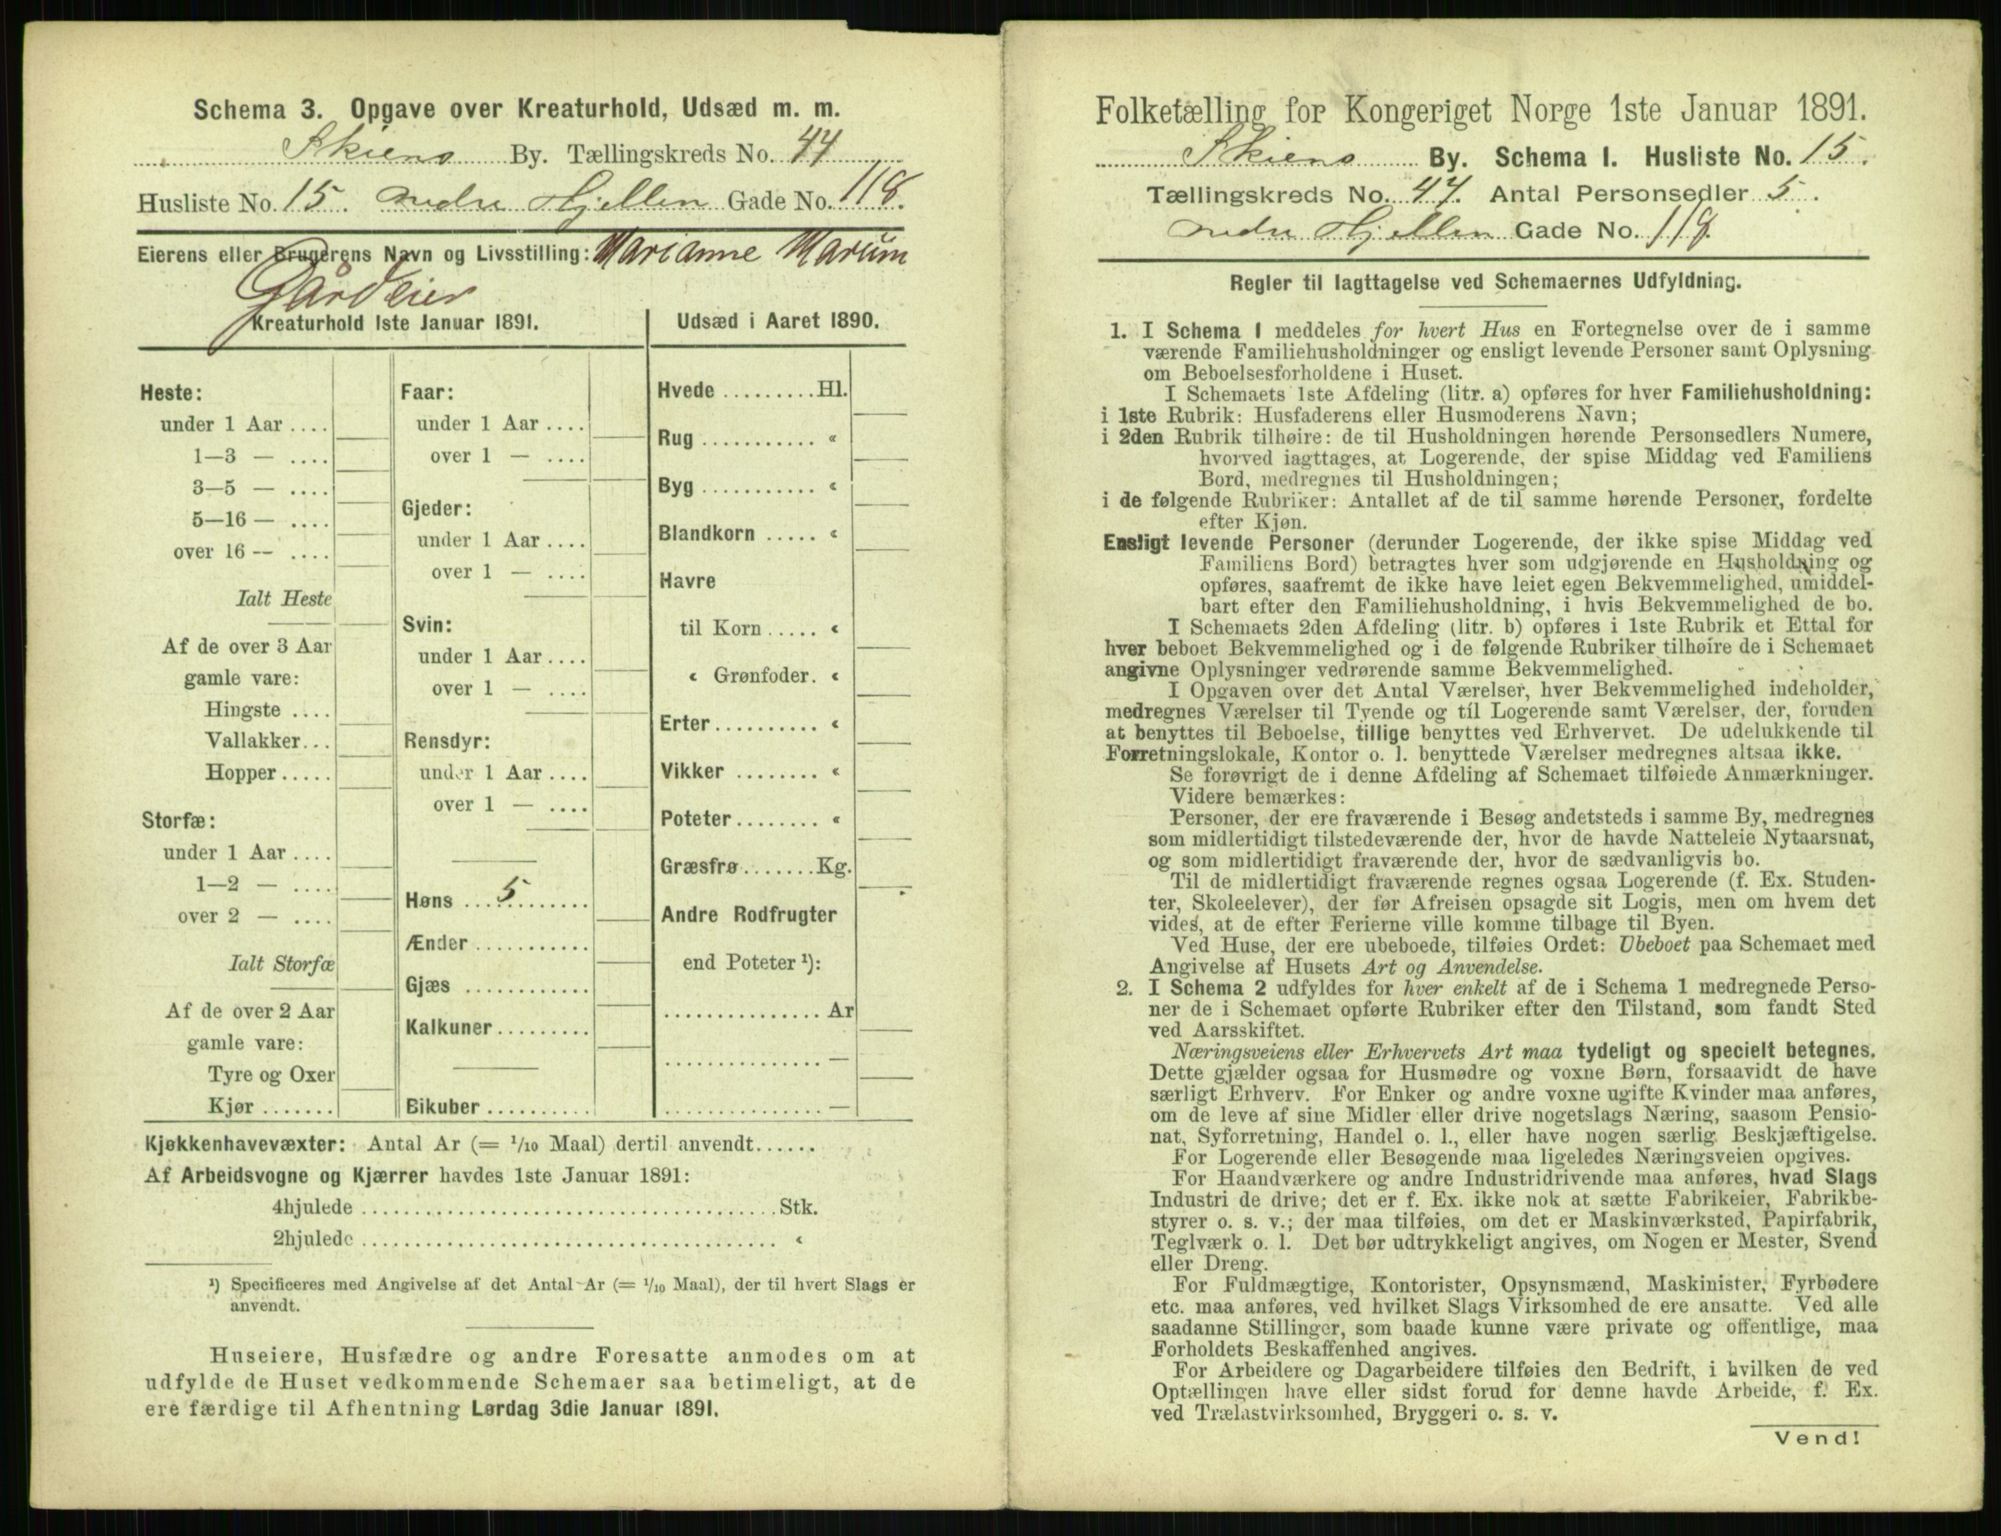 Schema 3. Opgave over Kreaturhold, Udsæd m. m.
Skiens By. Tællingskreds No. 44
Husliste No. 15. nedre Hjellen Gade No. 118.
Eierens eller Brugerens Navn og Livsstilling: Marianne Marum
Gårdeier
Kreaturhold 1ste Januar 1891.
Heste:
under 1 Aar ....
1—3 — ....
3—5 — ....
5—16 — ....
over 16 — ....
Ialt Heste
Af de over 3 Aar
gamle vare:
Hingste ....
Vallakker...
Hopper.....
Storfæ:
under 1 Aar ....
1—2 — ....
over 2 — ....
Ialt Storfæ
Af de over 2 Aar
gamle vare:
Tyre og Oxer
Kjør .......
Faar:
under 1 Aar ....
over 1 — ....
Gjeder:
under 1 Aar ....
over 1 — ....
Svin:
under 1 Aar ....
over 1 — ....
Rensdyr:
under 1 Aar ....
over 1 — ....
Høns .... 5
Ænder ..........
Gjæs ...........
Kalkuner........
Bikuber .........
Udsæd i Aaret 1890.
Hvede .........Hl.
Rug ........... «
Byg ........... «
Blandkorn ..... «
Havre
til Korn ..... «
« Grønfoder. «
Erter.......... «
Vikker ........ «
Poteter........ «
Græsfrø.......Kg.
Andre Rodfrugter
end Poteter ¹):
...............Ar
............... —
............... —
Kjøkkenhavevæxter: Antal Ar (= 1/10 Maal) dertil anvendt......
Af Arbeidsvogne og Kjærrer havdes 1ste Januar 1891:
4hjulede ........................................Stk.
2hjulede ........................................ «
¹) Specificeres med Angivelse af det Antal Ar (= 1/10 Maal), der til hvert Slags er
anvendt.
Huseiere, Husfædre og andre Foresatte anmodes om at
udfylde de Huset vedkommende Schemaer saa betimeligt, at de
ere færdige til Afhentning Lørdag 3die Januar 1891.
Folketælling for Kongeriget Norge 1ste Januar 1891.
Skiens By. Schema 1. Husliste No. 15.
Tællingskreds No. 44. Antal Personsedler 5.
nedre Hjellen Gade No. 118.
Regler til Iagttagelse ved Schemaernes Udfyldning.
1. I Schema 1 meddeles for hvert Hus en Fortegnelse over de i samme
værende Familiehusholdninger og ensligt levende Personer samt Oplysning
om Beboelsesforholdene i Huset.
I Schemaets 1ste Afdeling (litr. a) opføres for hver Familiehusholdning:
i 1ste Rubrik: Husfaderens eller Husmoderens Navn;
i 2den Rubrik tilhøire: de til Husholdningen hørende Personsedlers Numere,
hvorved iagttages, at Logerende, der spise Middag ved Familiens
Bord, medregnes til Husholdningen;
i de følgende Rubriker: Antallet af de til samme hørende Personer, fordelte
efter Kjøn.
Ensligt levende Personer (derunder Logerende, der ikke spise Middag ved
Familiens Bord) betragtes hver som udgjørende en Husholdning og
opføres, saafremt de ikke have leiet egen Bekvemmelighed, umiddel-
bart efter den Familiehusholdning, i hvis Bekvemmelighed de bo.
I Schemaets 2den Afdeling (litr. b) opføres i 1ste Rubrik et Ettal for
hver beboet Bekvemmelighed og i de følgende Rubriker tilhøire de i Schemaet
angivne Oplysninger vedrørende samme Bekvemmelighed.
I Opgaven over det Antal Værelser, hver Bekvemmelighed indeholder,
medregnes Værelser til Tyende og til Logerende samt Værelser, der, foruden
at benyttes til Beboelse, tillige benyttes ved Erhvervet. De udelukkende til
Forretningslokale, Kontor o. l. benyttede Værelser medregnes altsaa ikke.
Se forøvrigt de i denne Afdeling af Schemaet tilføiede Anmærkninger.
Videre bemærkes:
Personer, der ere fraværende i Besøg andetsteds i samme By, medregnes
som midlertidigt tilstedeværende der, hvor de havde Natteleie Nytaarsnat,
og som midlertidigt fraværende der, hvor de sædvanligvis bo.
Til de midlertidigt fraværende regnes ogsaa Logerende (f. Ex. Studen-
ter, Skoleelever), der før Afreisen opsagde sit Logis, men om hvem det
vides, at de efter Ferierne ville komme tilbage til Byen.
Ved Huse, der ere ubeboede, tilføies Ordet: Ubeboet paa Schemaet med
Angivelse af Husets Art og Anvendelse.
2. I Schema 2 udfyldes for hver enkelt af de i Schema 1 medregnede Perso-
ner de i Schemaet opførte Rubriker efter den Tilstand, som fandt Sted
ved Aarsskiftet.
Næringsveiens eller Erhvervets Art maa tydeligt og specielt betegnes.
Dette gjælder ogsaa for Husmødre og voxne Børn, forsaavidt de have
særligt Erhverv. For Enker og andre voxne ugifte Kvinder maa anføres,
om de leve af sine Midler eller drive nogetslags Næring, saasom Pensio-
nat, Syforretning, Handel o. l., eller have nogen særlig Beskjæftigelse.
For Logerende eller Besøgende maa ligeledes Næringsveien opgives.
For Haandværkere og andre Industridrivende maa anføres, hvad Slags
Industri de drive; det er f. Ex. ikke nok at sætte Fabrikeier, Fabrikbe-
styrer o. s. v.; der maa tilføies, om det er Maskinværksted, Papirfabrik,
Teglværk o. l. Det bør udtrykkeligt angives, om Nogen er Mester, Svend
eller Dreng.
For Fuldmægtige, Kontorister, Opsynsmænd, Maskinister, Fyrbødere
etc. maa anføres, ved hvilket Slags Virksomhed de ere ansatte. Ved alle
saadanne Stillinger, som baade kunne være private og offentlige, maa
Forholdets Beskaffenhed angives.
For Arbeidere og Dagarbeidere tilføies den Bedrift, i hvilken de ved
Optællingen have eller sidst forud for denne havde Arbeide, f. Ex.
ved Trælastvirksomhed, Bryggeri o. s. v.
Vend!